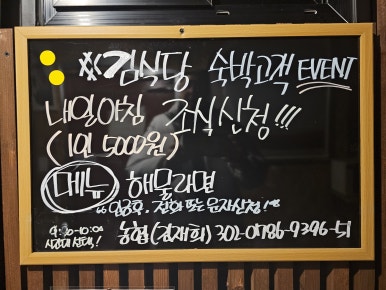 ※김식당 숙박고객 EVENT
내일아침 조식신청!!!
(1인 5000원)
메뉴 해물라면
"입금후. 전화 또는 문자신청!"
9:30-10:00 농협(김재희) 302-0786-9396-51